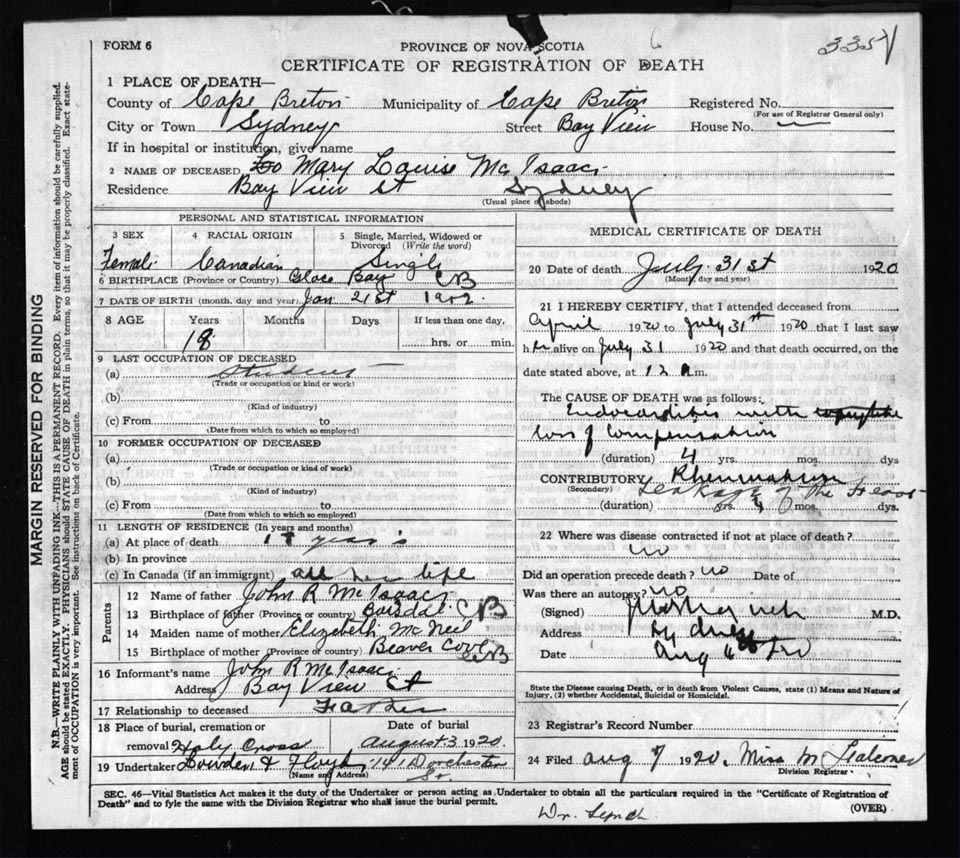 FORM 6
PROVINCE OF NOVA SCOTIA
6
335
CERTIFICATE OF REGISTRATION OF DEATH
1 PLACE OF DEATH—
County of Cape Breton Municipality of Cape Breton Registered No.
(For use of Registrar General only)
City or Town Sydney Street Bay View House No. —
If in hospital or institution, give name
2 NAME OF DECEASED Mary Louise McIsaac
Residence Bay View St Sydney
(Usual place of abode)
PERSONAL AND STATISTICAL INFORMATION
3 SEX 4 RACIAL ORIGIN 5 Single, Married, Widowed or Divorced (Write the word)
Female Canadian Single
6 BIRTHPLACE (Province or Country) Glace Bay CB
7 DATE OF BIRTH (month, day and year) Jan 21st 1902
8 AGE Years Months Days If less than one day,
18 hrs. or min.
9 LAST OCCUPATION OF DECEASED
(a) Student
(Trade or occupation or kind or work)
(b)
(Kind of industry)
(c) From to
(Date from which to which so employed)
10 FORMER OCCUPATION OF DECEASED
(a)
(Trade or occupation or kind of work)
(b)
(Kind of industry)
(c) From to
(Date from which to which so employed)
11 LENGTH OF RESIDENCE (In years and months)
(a) At place of death years
(b) In province
(c) In Canada (if an immigrant) all her life
Parents
12 Name of father John R McIsaac
13 Birthplace of father (Province or country) Boisdale CB
14 Maiden name of mother Elizabeth McNeil
15 Birthplace of mother (Province or country) Beaver Cove CB
16 Informant's name John R McIsaac
Address Bay View St
17 Relationship to deceased Father
18 Place of burial, cremation or Date of burial
removal Holy Cross August 3 1920.
19 Undertaker Lowden & Floyd, 141 Dorchester St.
(Name and Address)
MEDICAL CERTIFICATE OF DEATH
20 Date of death July 31st 1920
(Month, day and year)
21 I HEREBY CERTIFY, that I attended deceased from
April 1920 to July 31st 1920 that I last saw
her alive on July 31 1920 and that death occurred, on the
date stated above, at 12 m.
The CAUSE OF DEATH was as follows:
Endocarditis with
loss of compensation
(duration) 4 yrs. mos. dys
CONTRIBUTORY Rheumatism
(Secondary) Leakage of the Heart
(duration) yrs. mos. dys.
22 Where was disease contracted if not at place of death?
no
Did an operation precede death? no Date of
Was there an autopsy? no
(Signed) M.D.
Address Sydney
Date Aug
State the Disease causing Death, or in death from Violent Causes, state (1) Means and Nature of
Injury, (2) whether Accidental, Suicidal or Homicidal.
23 Registrar's Record Number
24 Filed Aug 7 1920. Miss M Falconer
Division Registrar
SEC. 46—Vital Statistics Act makes it the duty of the Undertaker or person acting as Undertaker to obtain all the particulars required in the "Certificate of Registration of
Death" and to fyle the same with the Division Registrar who shall issue the burial permit.
(OVER)
Dr. Lynch
MARGIN RESERVED FOR BINDING
N.B.—WRITE PLAINLY WITH UNFADING INK—THIS IS A PERMANENT RECORD. Every item of information should be carefully supplied.
AGE should be stated EXACTLY. PHYSICIANS should STATE CAUSE OF DEATH in plain terms, so that it may be properly classified. Exact state-
ment of OCCUPATION is very important. See instructions on back of Certificate.